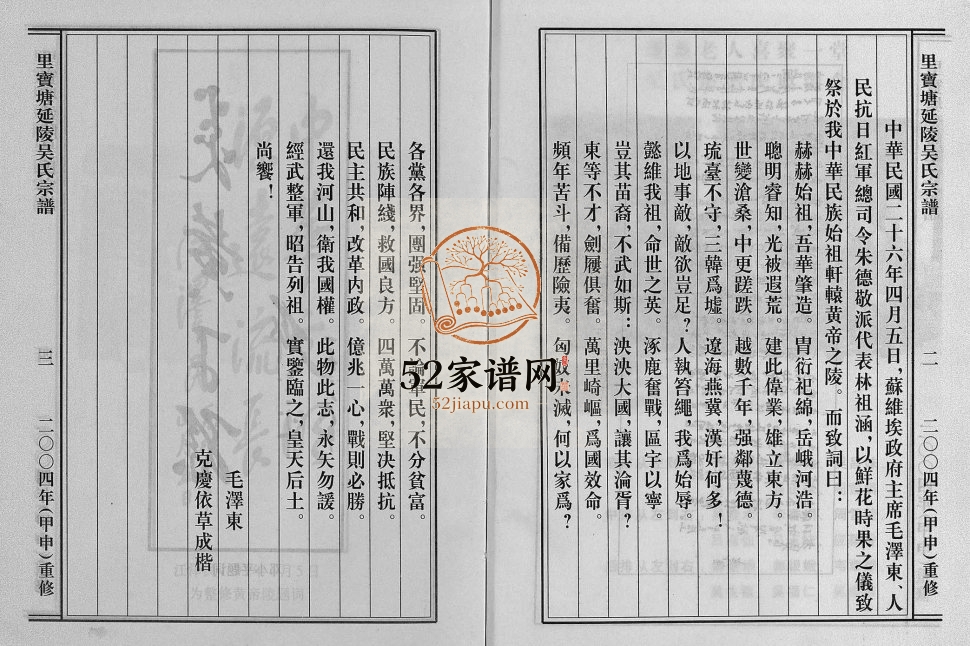 里寶塘延陵吴氏宗譜
二
二〇〇四年(甲申)重修
中華民國二十六年四月五日,蘇維埃政府主席毛澤東、人
民抗日紅軍總司令朱德敬派代表林祖涵,以鮮花時果之儀致
祭於我中華民族始祖軒轅黄帝之陵。而致詞曰:
赫赫始祖,吾華肇造。胄衍祀綿,岳峨河浩。
聰明睿知,光被遐荒。建此偉業,雄立東方。
世變滄桑,中更蹉跌。越數千年,强鄰蔑德。
琉臺不守,三韓爲墟。遼海燕冀,漢奸何多!
以地事敵,敵欲豈足?人執笞繩,我爲始辱。
懿維我祖,命世之英。涿鹿奮戰,區宇以寧。
豈其苗裔,不武如斯:泱泱大國,讓其淪胥?
東等不才,劍屨俱奮。萬里崎嶇,爲國效命。
頻年苦斗,備歷險夷。匈未滅,何以家爲?
各黨各界,團强堅固。不論軍民,不分貧富。
民族陣綫,救國良方。四萬萬衆,堅决抵抗。
民主共和,改革内政。億兆一心,戰則必勝。
還我河山,衛我國權。此物此志,永矢勿諼。
經武整軍,昭告列祖。實鑒臨之,皇天后土。
尚饗!
毛澤東
克慶依草成楷
里寶塘延陵吴氏宗譜
三
二〇〇四年(甲申)重修
52家谱网
52jiapu.com